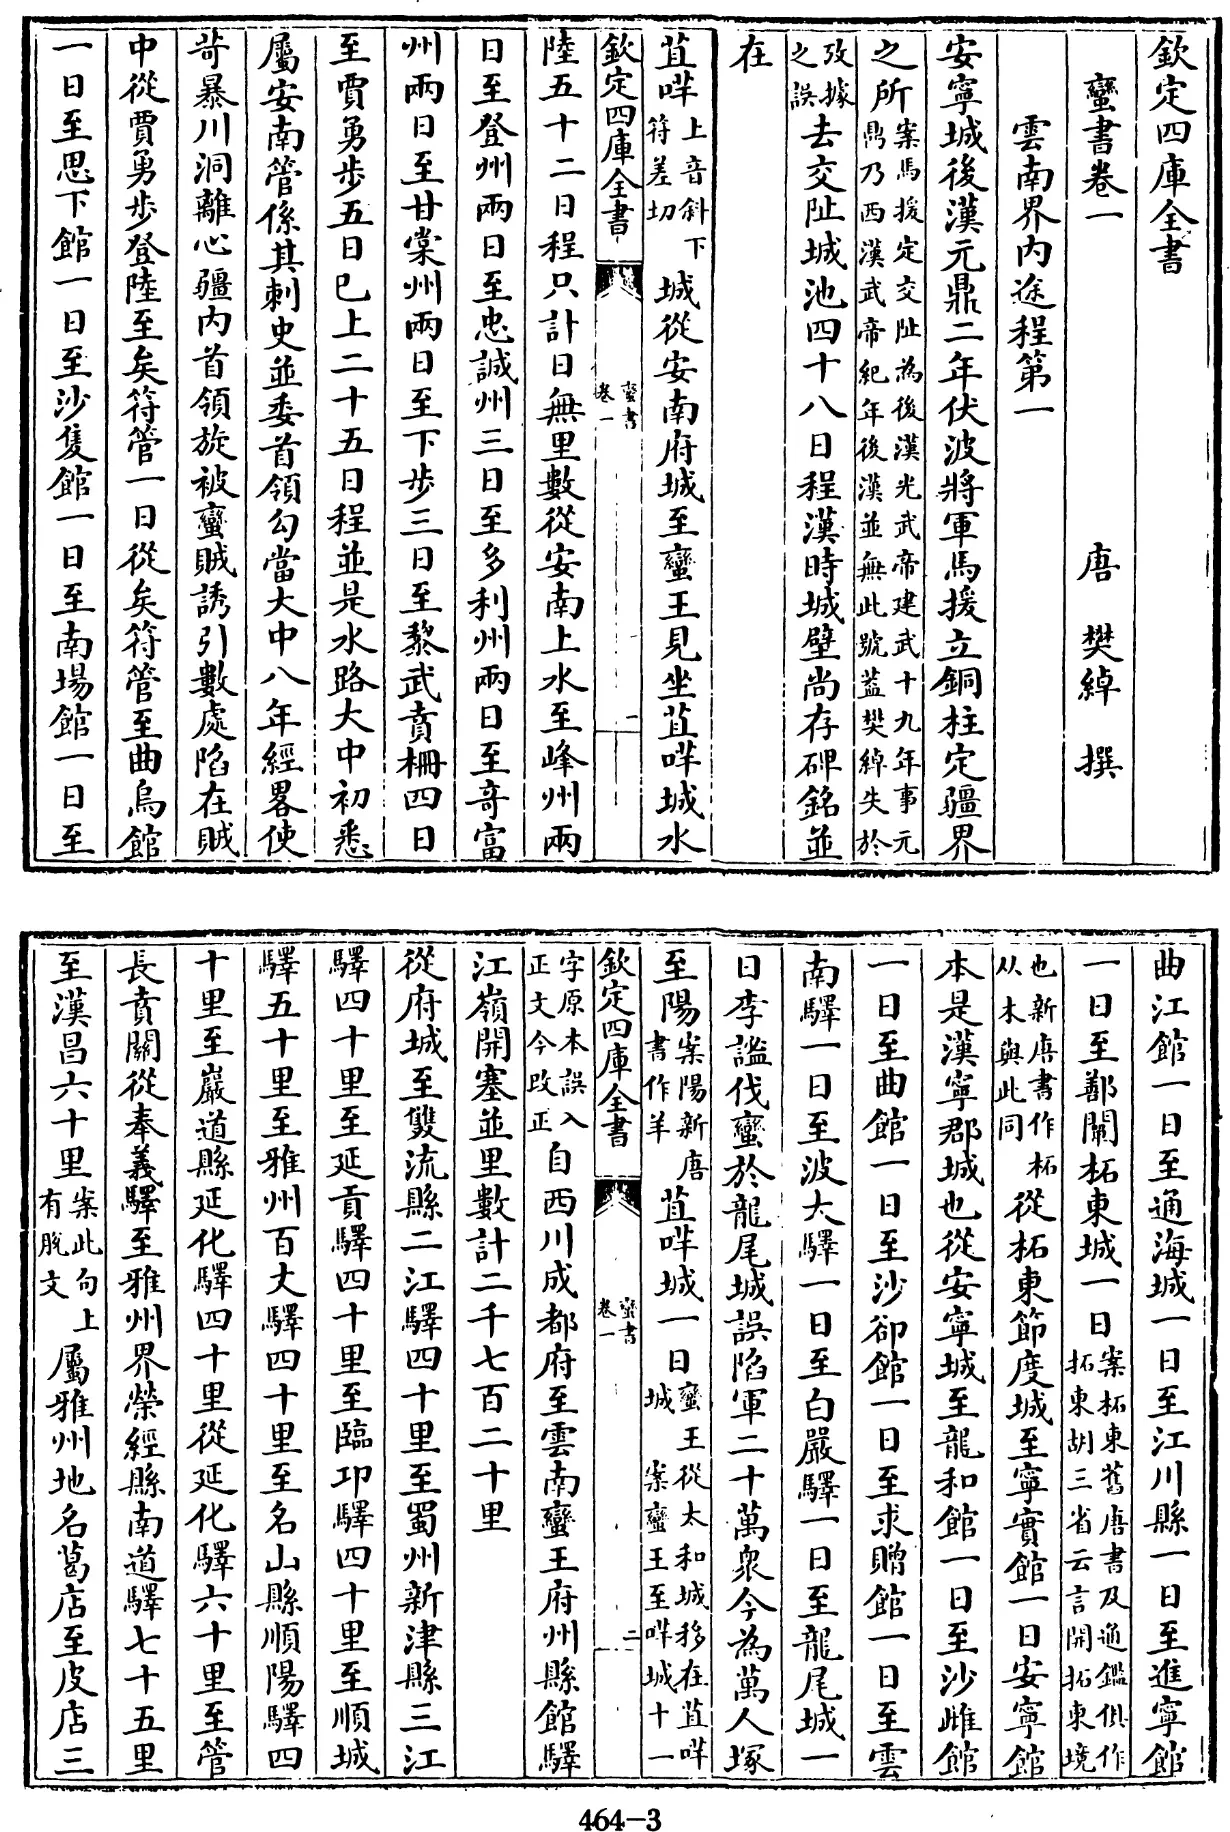 欽定四庫全書
蠻書卷一
唐 樊綽 撰
雲南界內途程第一
安寧城後漢元鼎二年伏波將軍馬援立銅柱定疆界
之所案馬援定交阯為後漢光武帝建武十九年事元鼎乃西漢武帝紀年後漢並無此號葢樊綽失於
攷據之誤去交阯城池四十八日程漢時城壁尚存碑銘並
在
苴咩上音斜下符差切城從安南府城至蠻王見坐苴咩城水
欽定四庫全書
蠻書
卷一
一
陸五十二日程只計日無里數從安南上水至峰州兩
日至登州兩日至忠誠州三日至多利州兩日至奇富
州兩日至甘棠州兩日至下步三日至黎武賁柵四日
至賈勇步五日巳上二十五日程並是水路大中初悉
屬安南管係其刺史並委首領勾當大中八年經畧使
苛暴川洞離心疆內首領旋被蠻賊誘引數處陷在賊
中從賈勇步登陸至矣符管一日從矣符管至曲烏館
一日至思下館一日至沙隻館一日至南場館一日至
曲江館一日至通海城一日至江川縣一日至進寧館
一日至鄯闡柘東城一日案柘東舊唐書及通鑑俱作拓東胡三省云言開拓東境
也新唐書作柘从木與此同從柘東節度城至寧實館一日安寧館
本是漢寧郡城也從安寧城至龍和館一日至沙雌館
一日至曲館一日至沙卻館一日至求贈館一日至雲
南驛一日至波大驛一日至白嚴驛一日至龍尾城一
日李謐伐蠻於龍尾城誤陷軍二十萬衆今為萬人塚
至陽案陽新唐書作羊苴咩城一日蠻王從太和城移在苴咩城 案蠻王至咩城十一
欽定四庫全書
蠻書
卷一
二
字原本誤入正文今改正自西川成都府至雲南蠻王府州縣館驛
江嶺開塞並里數計二千七百二十里
從府城至雙流縣二江驛四十里至蜀州新津縣三江
驛四十里至延貢驛四十里至臨邛驛四十里至順城
驛五十里至雅州百丈驛四十里至名山縣順陽驛四
十里至嚴道縣延化驛四十里從延化驛六十里至管
長賁關從奉義驛至雅州界榮經縣南道驛七十五里
至漢昌六十里案此句上有脫文屬雅州地名葛店至皮店三
464-3